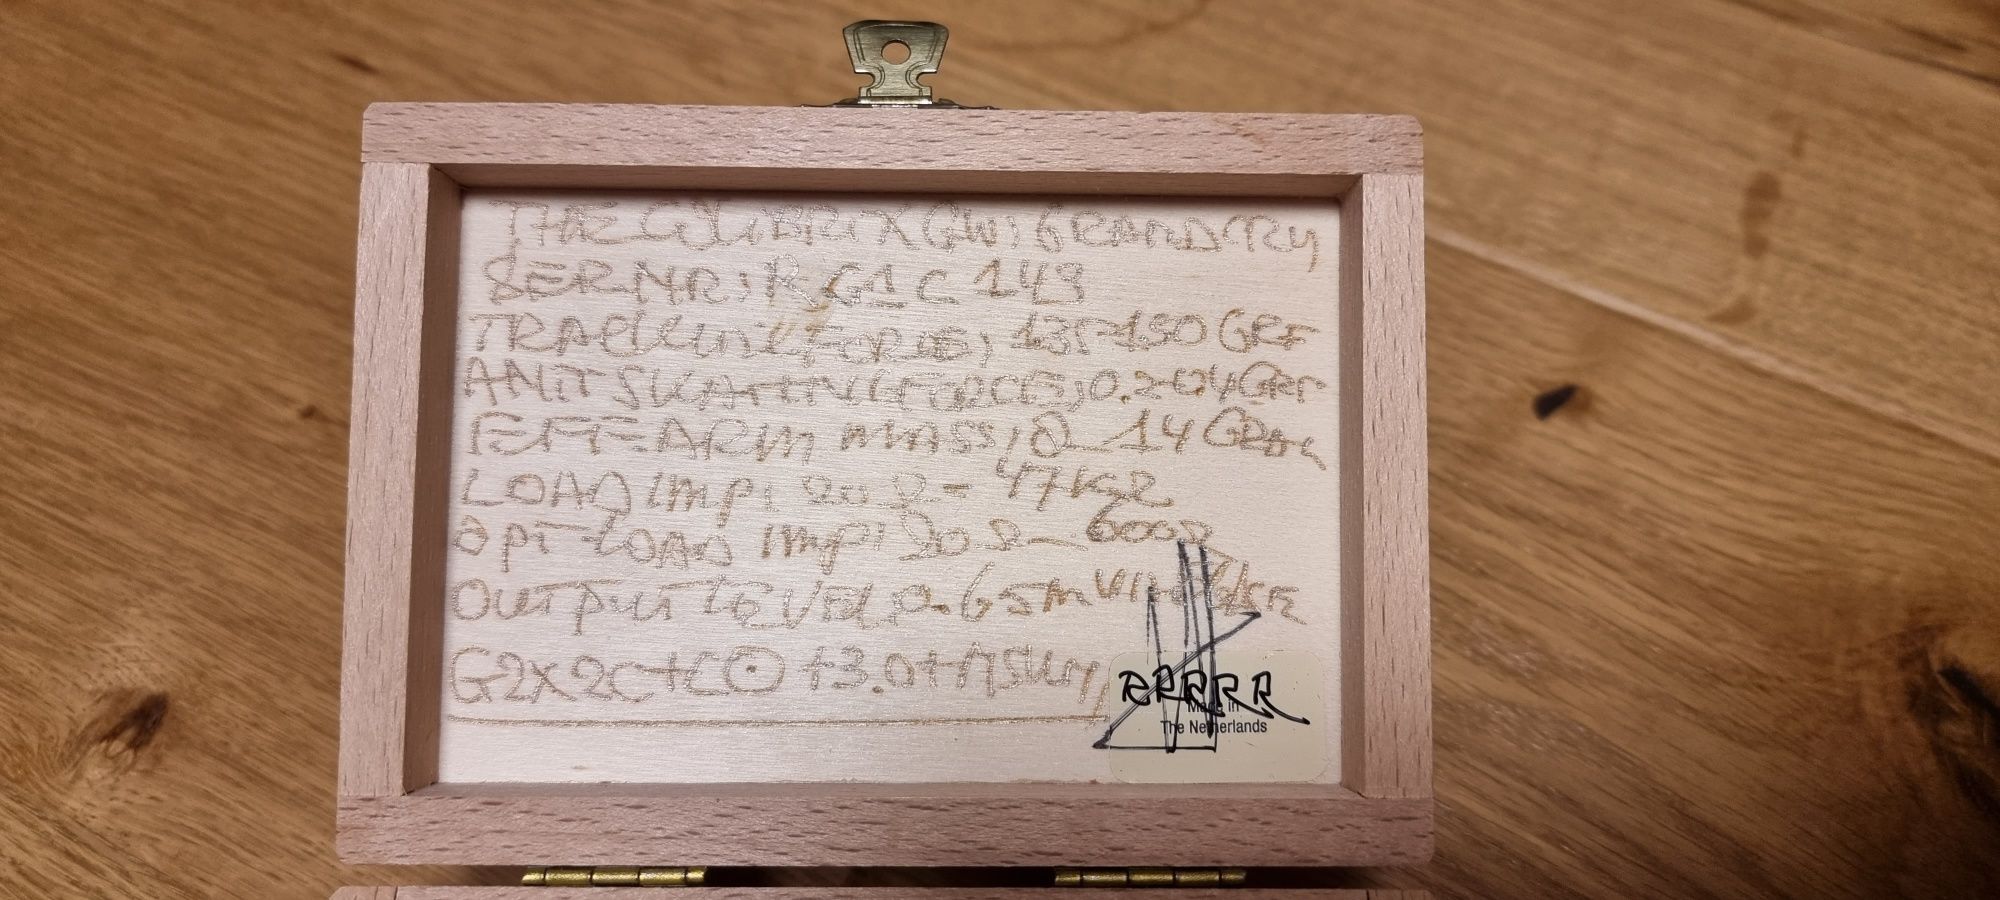 THE COLIBRI X (GW) GRANDCRU
SER NR: RG1C 149
TRACKING FORCE; 1.35-1.50 GRF
ANIT SKATING FORCE; 0.2-0.4 GRF
EFF ARM MASS; 8-14 GRAM
LOAD IMP: 20Ω - 47KΩ
OPT LOAD IMP: 20Ω - 600Ω
OUTPUT LEVEL; 0.65 m
G2X2C+C⊙ +3.0+
RRRRR
Made in
The Netherlands